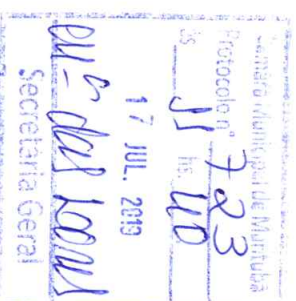 Câmara Municipal de Muritiba
Protocolo nº 723
às 11 hs 40
17 JUL. 2019
Secretaria Geral